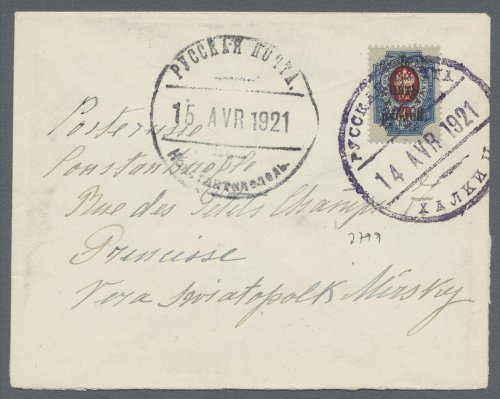 РУССКАЯ ПОЧТА.
15 AVR 1921
Константинополь.
РУССКАЯ ПОЧТА
14 AVR 1921
ХАЛКИ
Posterusse
Constantinople
Rue des Petits Champs
Princesse
Vera Swiatopolk Mirsky
2799